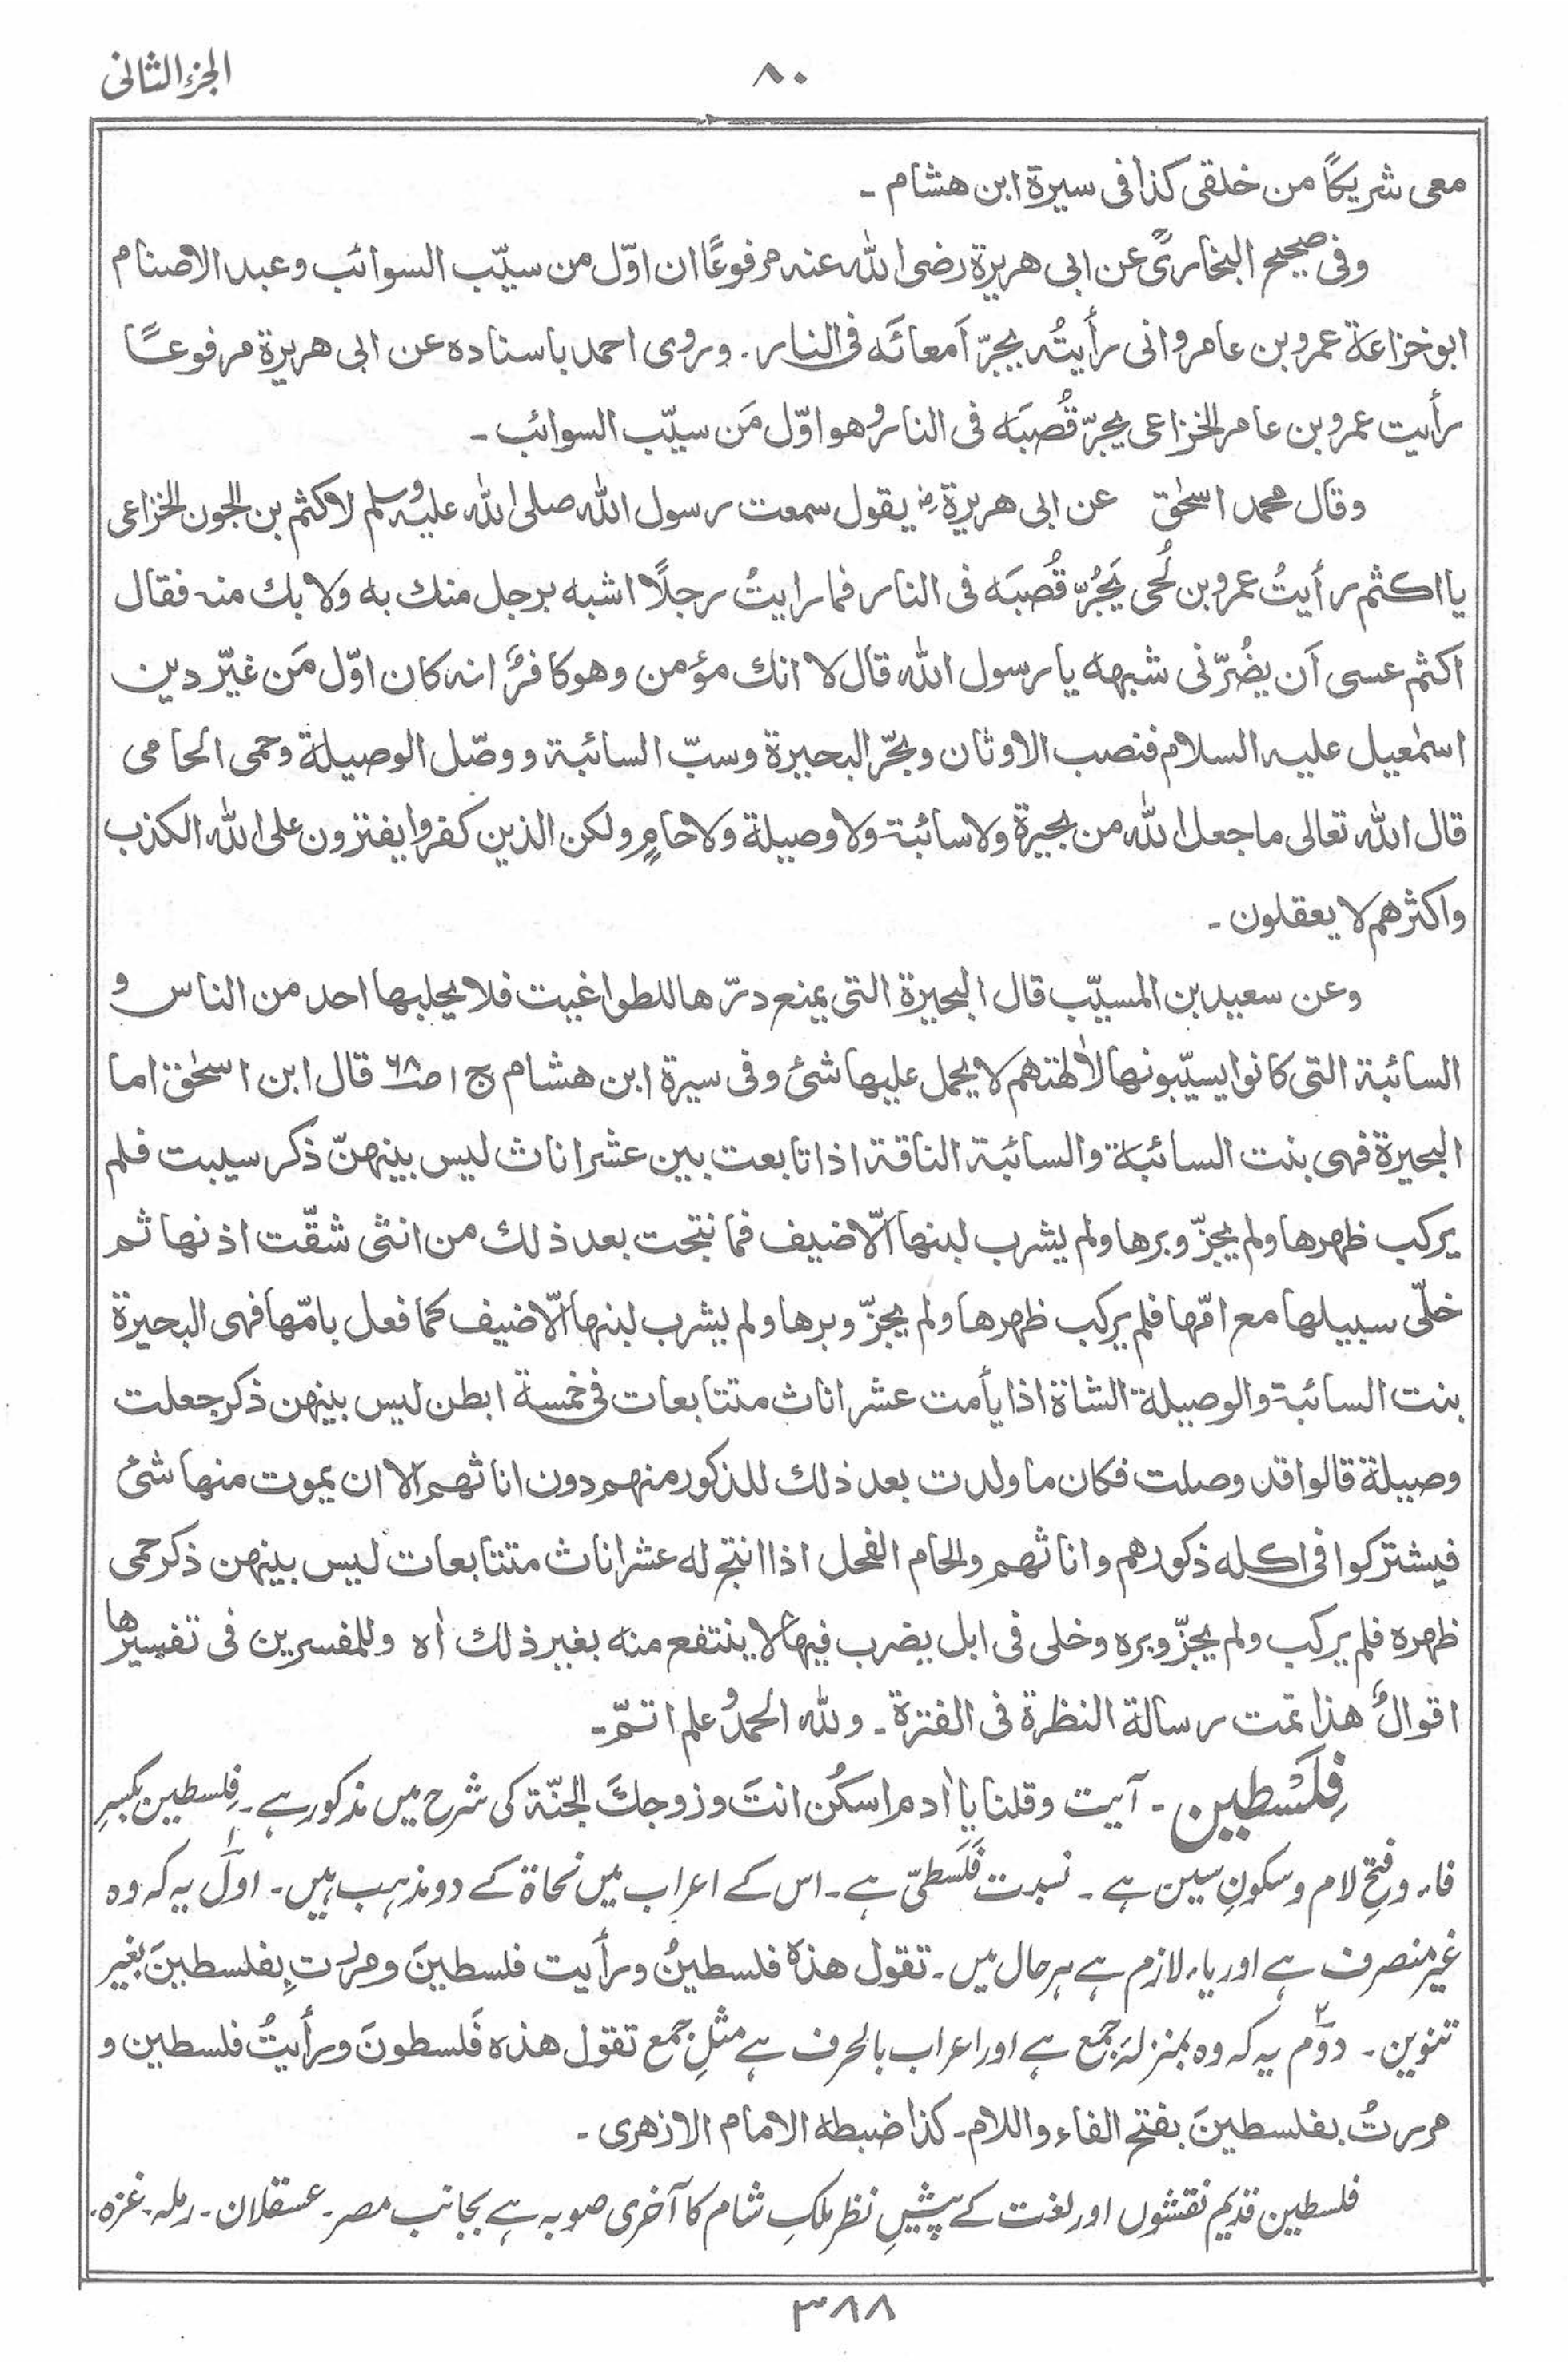 الجزء الثانی
۸۰
معی شریکًا من خلقی کذا فی سیرۃ ابن ھشام ۔
وفی صحیح البخاریؒ عن ابی ھریرۃ رضی اللہ عنہ مرفوعًا ان اوّل من سیّب السوائب وعبد الاصنام
ابو خزاعۃ عمرو بن عامر وانی رأیتُہ یجرّ اَمعائَہ فی النار۔ وروی احمد باسنادہ عن ابی ھریرۃ مرفوعًا
رأیت عمرو بن عامر الخزاعی یجرّ قُصبَہ فی النار وھو اوّل مَن سیّب السوائب ۔
وقال محمد اسحٰق عن ابی ھریرۃ رضؓ یقول سمعت رسول اللہ صلی اللہ علیہ وسلم لاکثم بن الجون الخزاعی
یا اکثم رأیتُ عمرو بن لُحی یَجُرّ قُصبَہ فی النار فما رایتُ رجلًا اشبہ برجل منك بہ ولا بك منہ فقال
اکثم عسی اَن یضُرّنی شبھہ یا رسول اللہ قال لا انك مؤمن وھو کافرٌ انہ کان اوّل مَن غیّر دین
اسمٰعیل علیہ السلام فنصب الاوثان وبحّر البحیرۃ وسبّ السائبۃ ووصّل الوصیلۃ وحمی الحامی
قال اللہ تعالی ما جعل اللہ من بحیرۃ ولا سائبۃ ولا وصیلۃ ولا حامٍ ولکن الذین کفروا یفترون علی اللہ الکذب
واکثرھم لا یعقلون ۔
وعن سعید بن المسیّب قال البحیرۃ التی یمنع درّھا للطواغیت فلا یحلبھا احد من الناس و
السائبۃ التی کانوا یسیّبونھا لاٰلھتھم لا یحمل علیھا شئ وفی سیرۃ ابن ھشام ج ۱ ص۶۸ قال ابن اسحٰق اما
البحیرۃ فھی بنت السائبۃ والسائبۃ الناقۃ اذا تابعت بین عشر اناث لیس بینھنّ ذکر سیبت فلم
یرکب ظھرھا ولم یجزّ وبرھا ولم یشرب لبنھا الّا ضیف فما نتجت بعد ذلك من انثی شقّت اذنھا ثم
خلّی سبیلھا مع امّھا فلم یرکب ظھرھا ولم یجزّ وبرھا ولم یشرب لبنھا الّا ضیف کما فعل بامّھا فھی البحیرۃ
بنت السائبۃ والوصیلۃ الشاۃ اذا یأمت عشر اناث متتابعات فی خمسۃ ابطن لیس بینھن ذکر جعلت
وصیلۃ قالوا قد وصلت فکان ما ولدت بعد ذلك للذکور منھم دون اناثھم الا ان یموت منھا شئ
فیشترکوا فی اکلہ ذکورھم واناثھم والحام الفحل اذا انتج لہ عشر اناث متتابعات لیس بینھن ذکر حمی
ظھرہ فلم یرکب ولم یجزّ وبرہ وخلی فی ابل یضرب فیھا لا ینتفع منہ بغیر ذلك اٰہ وللمفسرین فی تفسیرھا
اقوالٌ ھذا تمت رسالۃ النظرۃ فی الفترۃ ۔ وللہ الحمدُ وعلم اتمّ ۔
فِلَسْطین ۔ آیت وقلنا یا اٰدم اسکُن انتَ وزوجكَ الجنّۃ کی شرح میں مذکور ہے۔ فِلسطین بکسرِ
فاء و فتحِ لام و سکونِ سین ہے ۔ نسبت فَلَسطیّ ہے۔ اس کے اعراب میں نحاۃ کے دو مذہب ہیں۔ اوّل یہ کہ وہ
غیر منصرف ہے اور یاء لازم ہے ہر حال میں۔ تقول ھذہٖ فلسطینُ ورأیت فلسطینَ ومررتِ بفلسطینَ بغیر
تنوین ۔ دوّم یہ کہ وہ بمنزلۂ جمع ہے اور اعراب بالحرف ہے مثلِ جمع تقول ھذہ فَلسطونَ ورأیتُ فلسطین و
مررتُ بفلسطینَ بفتح الفاء واللام۔ کذا ضبطہ الامام الازھری ۔
فلسطین قدیم نقشوں اور لغت کے پیشِ نظر ملکِ شام کا آخری صوبہ ہے بجانب مصر۔ عسقلان۔ رملہ۔ غزہ۔
۳۸۸